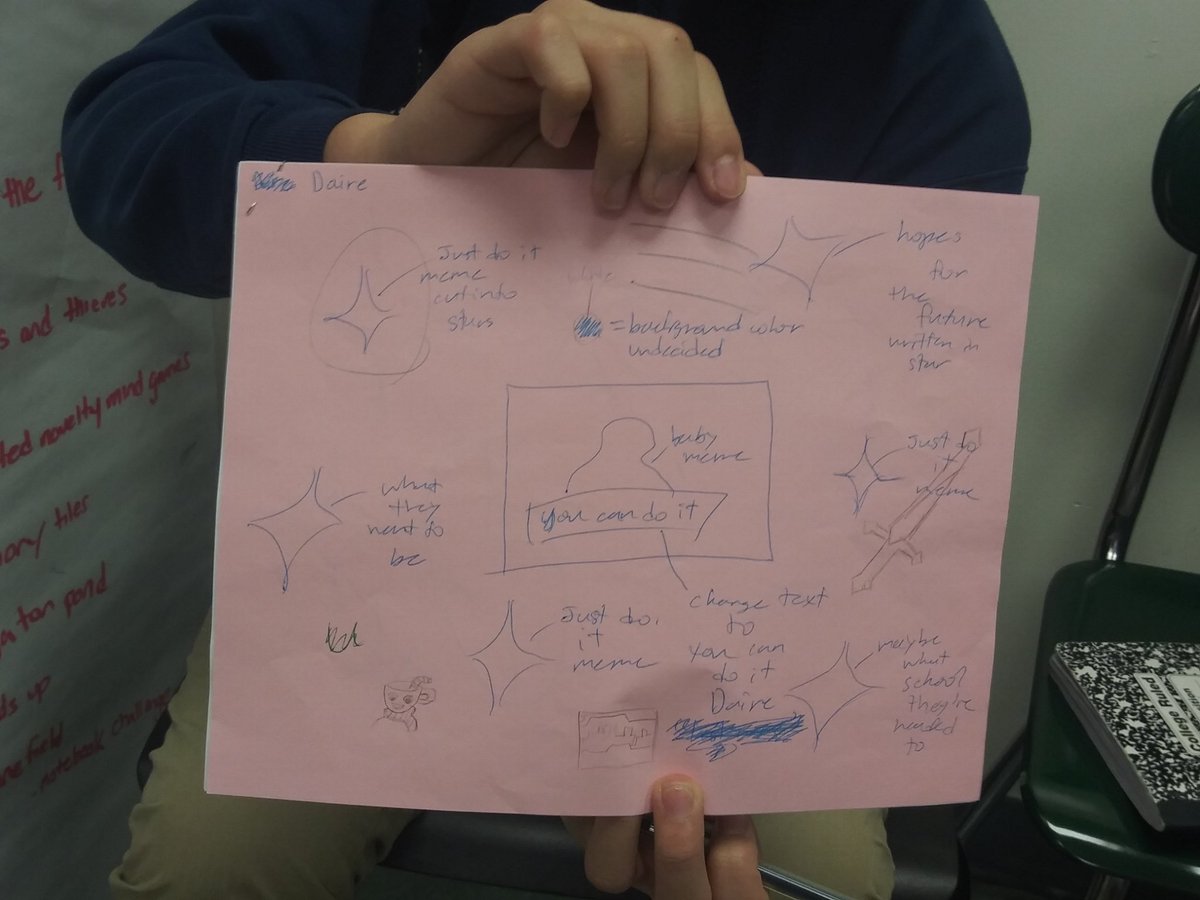 Daire
Just do it
meme
cut into
stars
= background color
undecided
hopes
for
the
future
written in
star
baby
meme
you can do it
Just do
it
meme
what
they
want to
be
change text
to
you can
do it
Daire
Just do
it
meme
maybe
what
school
they're
headed
to
the
s and thieves
ted novelty mind games
ory tiles
ton pond
ds up
ne field
notebook challenge
Wide Ruled